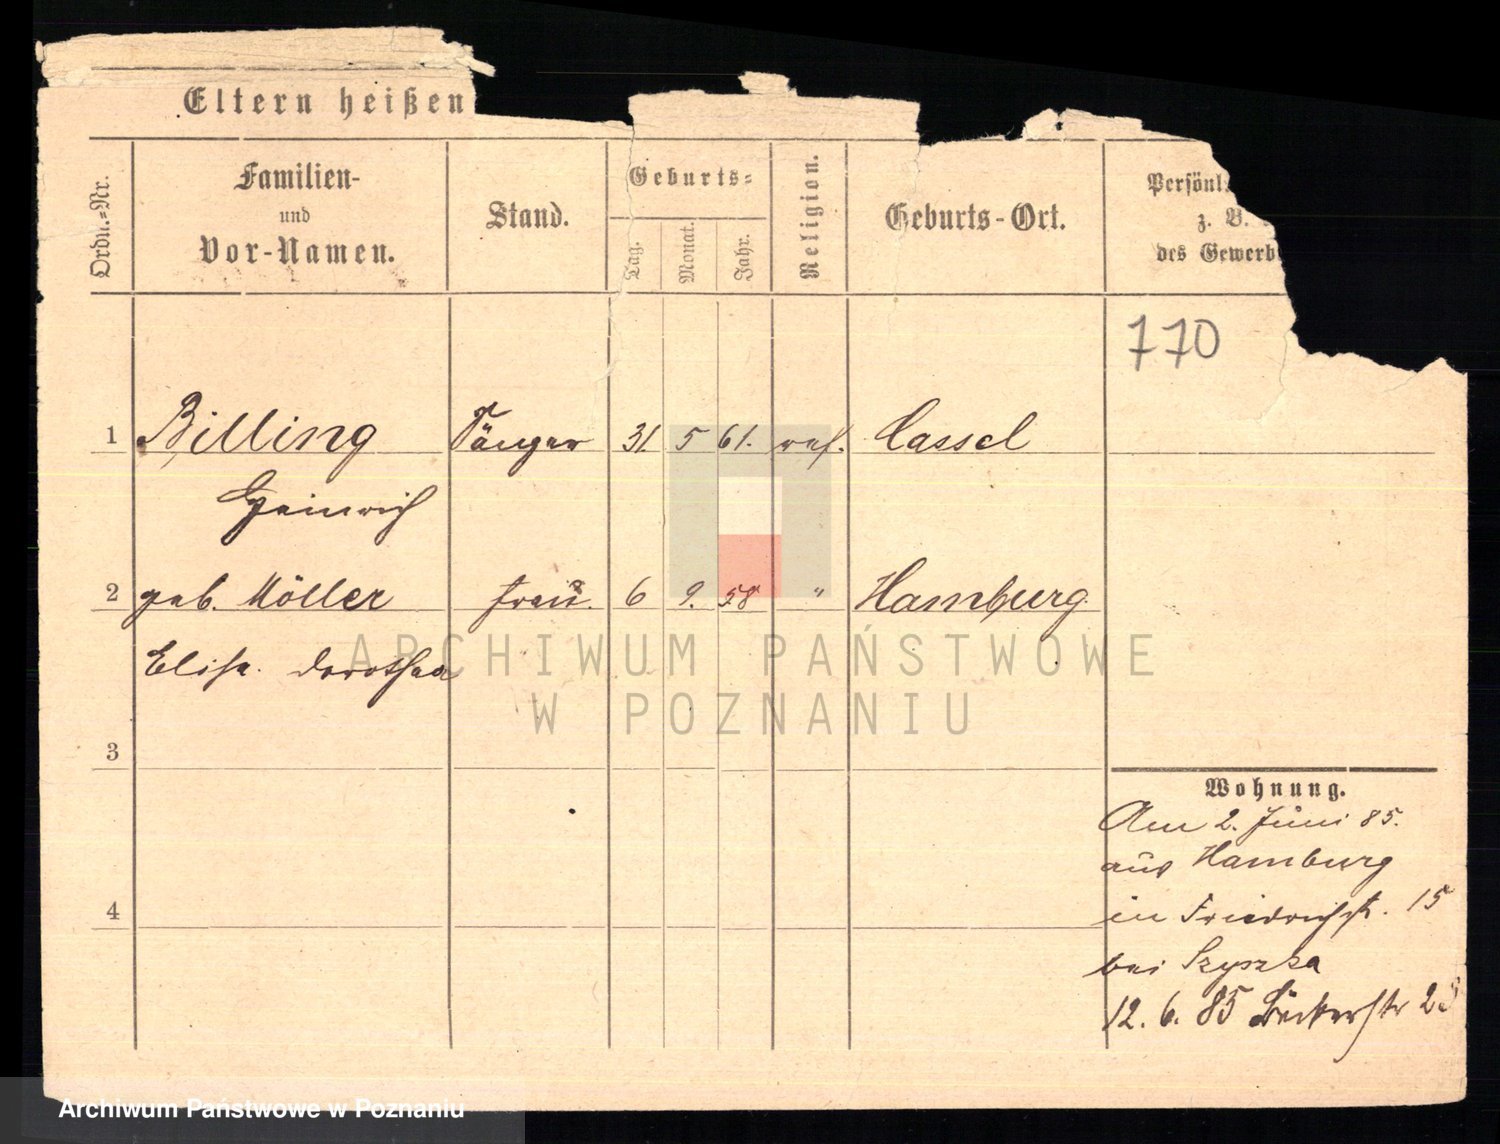 Eltern heißen
Ordn.-Nr.
Familien-
und
Vor-Namen.
Stand.
Geburts-
Tag.
Monat.
Jahr.
Religion.
Geburts-Ort.
Persönl.
z. B.
des Gewerb
770
1 Billing Sänger 31. 5 61. ref. Cassel
Heinrich
2 geb. Möller Frau. 6 9. 58 " Hamburg
Elise. Dorothea
3
4
Wohnung.
Am 2. Juni 85.
aus Hamburg
in Friedrichstr. 15
bei Szyszka
12. 6. 85
ARCHIWUM PAŃSTWOWE
W POZNANIU
Archiwum Państwowe w Poznaniu